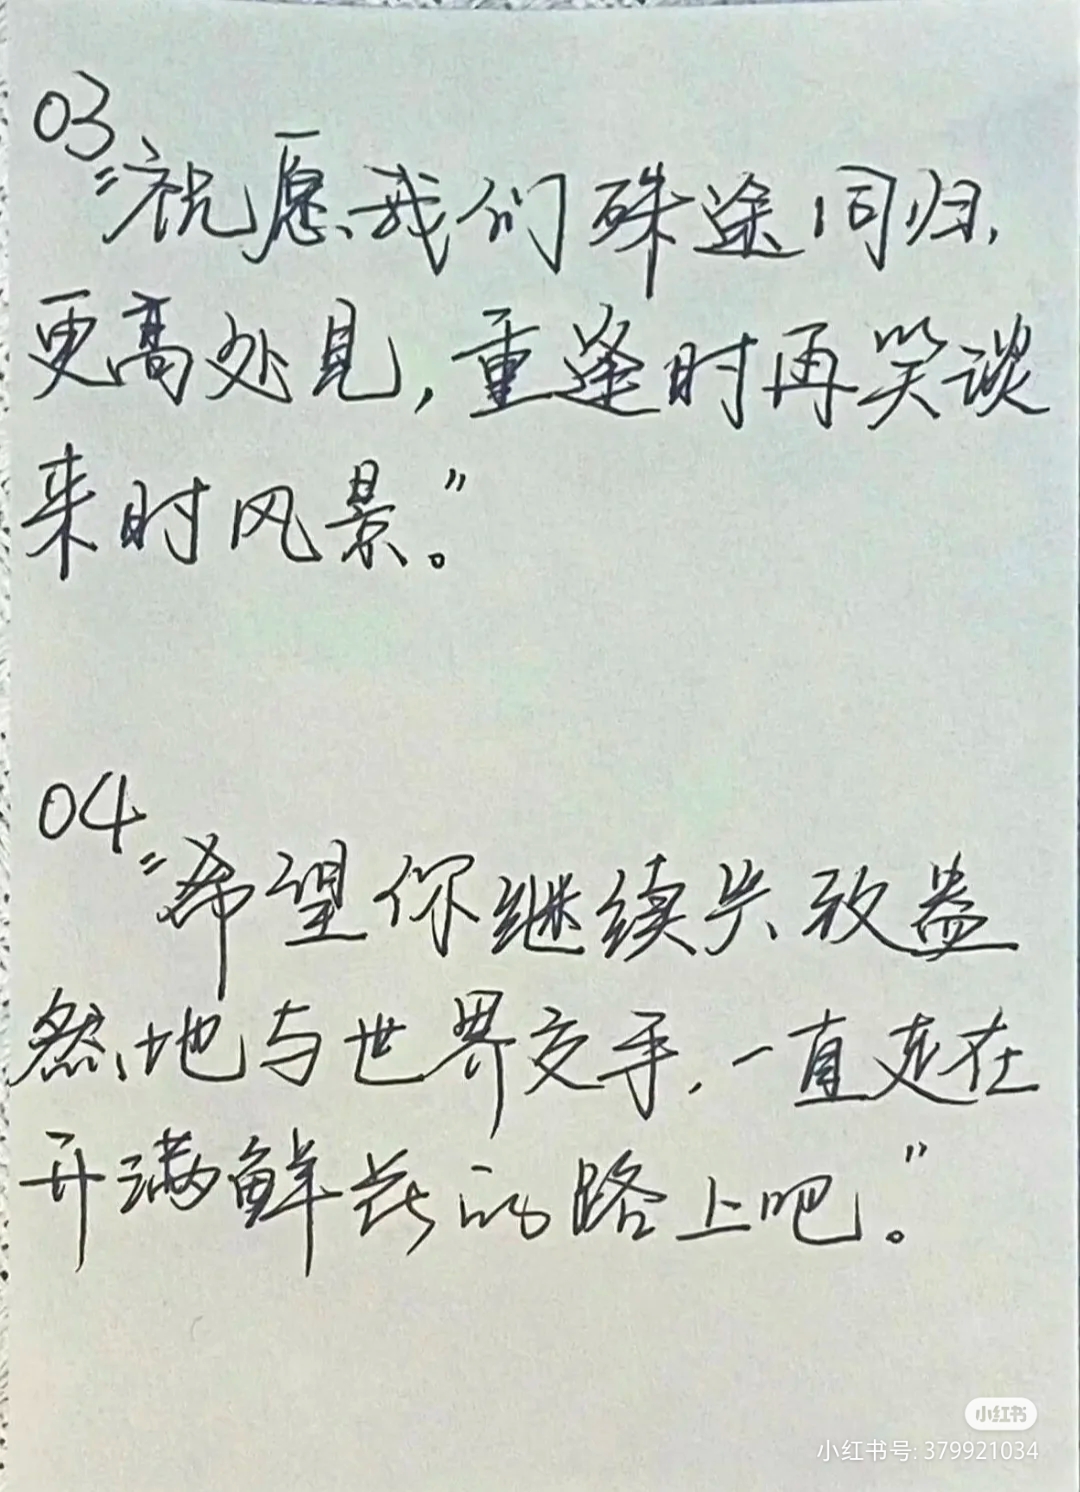 03
"祝愿我们殊途同归,
更高处见,重逢时再笑谈
来时风景。"
04
"希望你继续兴致盎
然地与世界交手,一直走在
开满鲜花的路上吧。"
小红书
小红书号: 379921034